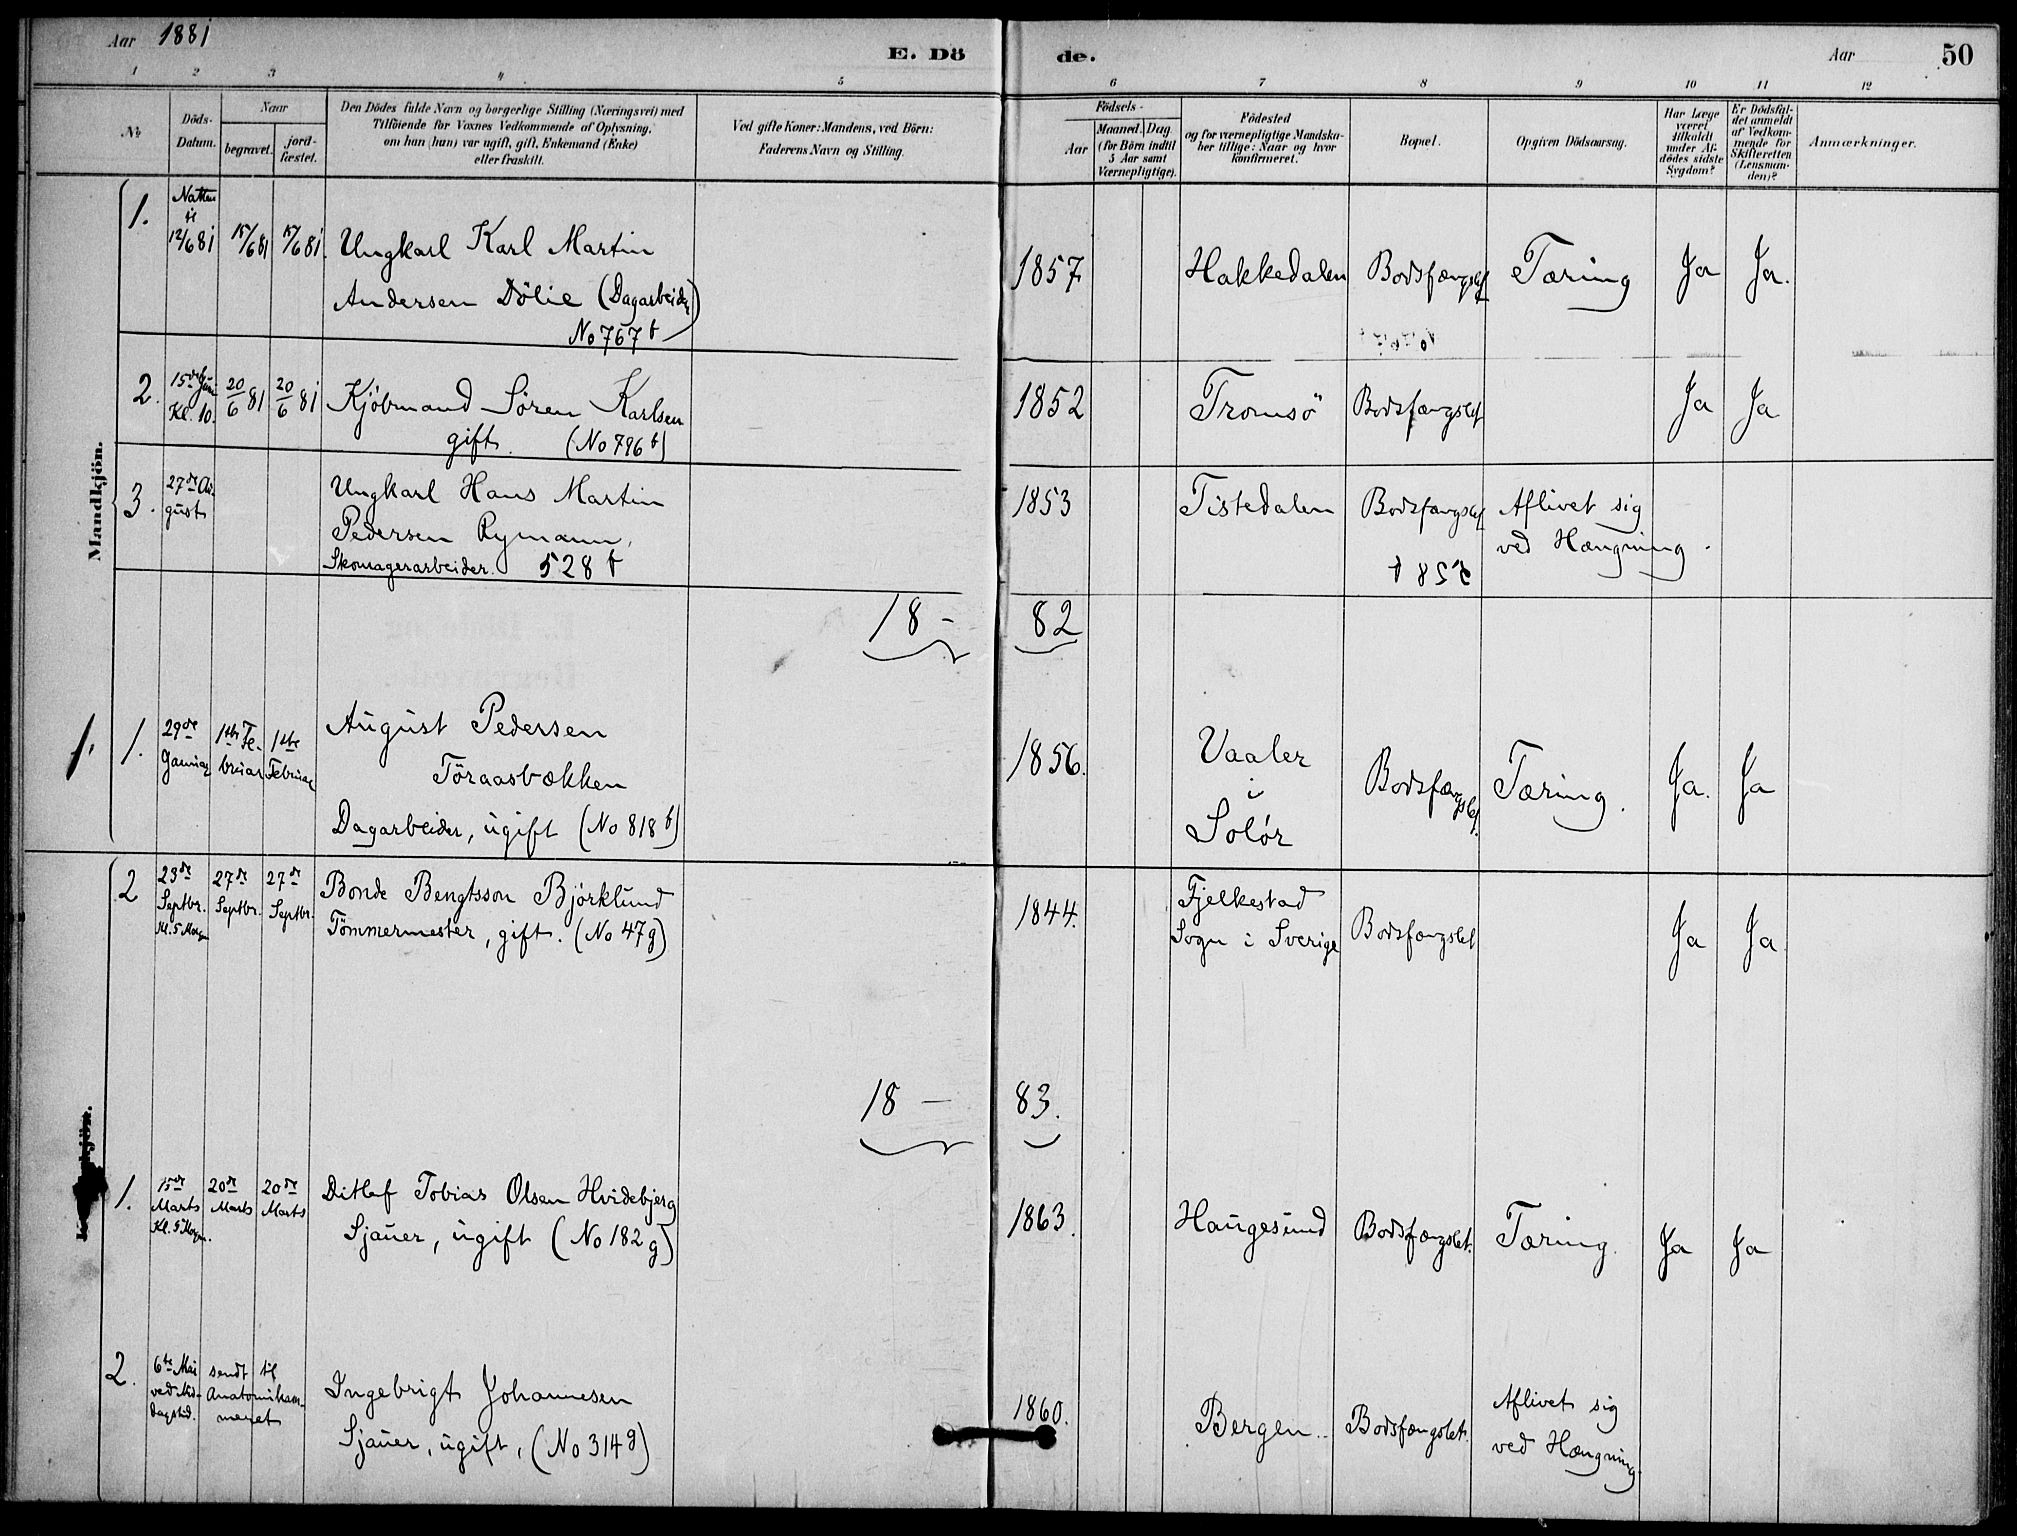 Aar 1881
E. Döde.
Aar
50
1 2 3 4 5 6 7 8 9 10 11 12
No
Döds-Datum.
Naar
begravet.
jordfæstet.
Den Dödes fulde Navn og borgerlige Stilling (Næringsvei) med
Tilföiende for Voxnes Vedkommende af Oplysning,
om han (hun) var ugift, gift, Enkemand (Enke)
eller fraskilt.
Ved gifte Koner: Mandens, ved Börn:
Faderens Navn og Stilling.
Födsels-
Aar
Maaned. Dag.
(for Börn indtil
5 Aar samt
Værnepligtige).
Födested
og for værnepligtige Mandska-
ber tillige: Naar og hvor
konfirmeret.
Bopæl.
Opgiven Dödsaarsag.
Har Læge
været
tilkaldt
under Af-
dödes sidste
Sygdom?
Er Dödsfal-
det anmeldt
af Vedkom-
mende for
Skifteretten
(Lensman-
den)?
Anmærkninger.
Mandkjön.
1.
Natten
til
12/6 81
15/6 81
15/6 81.
Ungkarl Karl Martin
Andersen Dölie (Dagarbeider)
No 767 b
1857
Hakkedalen
Bodsfængslet
Tæring
Ja
Ja.
2.
15de Juni
Kl. 10.
20/6 81
20/6 81
Kjöbmand Sören Karlsen
gift. (No 796 b)
1852
Tromsö
Bodsfængslet
Ja
Ja
3.
27de Au-
gust
Ungkarl Hans Martin
Pedersen Rymann,
Skomagerarbeider. 528 b
1853
Tistedalen
Bodsfængslet
Aflivet sig
ved Hængning.
18 - 82
1.
1.
29de
Januar
1ste Fe-
bruar
1ste
Februar
August Pedersen
Töraasbækken
Dagarbeider, ugift (No 818 b)
1856.
Vaaler
i
Solör
Bodsfængslet.
Tæring.
Ja.
Ja
2
23de
Septbr.
Kl. 5 Morgen
27de
Septbr.
27de
Septbr.
Bonde Bengtsson Björklund
Tömmermester, gift. (No 47 g)
1844.
Fjelkestad
Sogn i Sverige
Bodsfængslet
Ja
Ja
18 - 83.
kjön.
1.
15de
Marts
Kl. 5 Morgen.
20de
Marts
20de
Marts
Ditlef Tobias Olsen Hvidebjerg
Sjauer, ugift (No 182 g)
1863.
Haugesund
Bodsfængslet.
Tæring.
Ja
Ja
2.
6te Mai
ved Mid-
dagstid.
sendt til
Anatomikam-
meret
Ingebrigt Johannesen
Sjauer, ugift, (No 314 g)
1860.
Bergen.
Bodsfængslet.
Aflivet sig
ved Hængning.